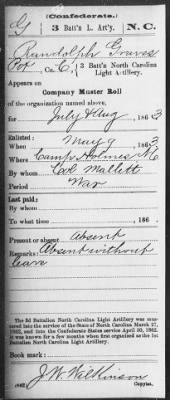 (Confederate.)
G 3 Batt'n L. Art'y. N.C.
Randolph Graves
Pvt, Co. C, 3 Batt'n North Carolina
Light Artillery.
Appears on
Company Muster Roll
of the organization named above,
for July & Aug, 1863
Enlisted:
When May 9, 1863
Where Camp Holmes NC
By whom Col Mallett
Period War
Last paid:
By whom
To what time , 186 .
Present or absent Absent
Remarks: Absent without
leave
The 3d Battalion North Carolina Light Artillery was mustered into the service of the State of North Carolina March 27, 1862, and into the Confederate States service April 30, 1862. It was known for a few months when first organized as the 1st Battalion North Carolina Light Artillery.
Book mark:
J. W. Wilkinson
(642) Copyist.